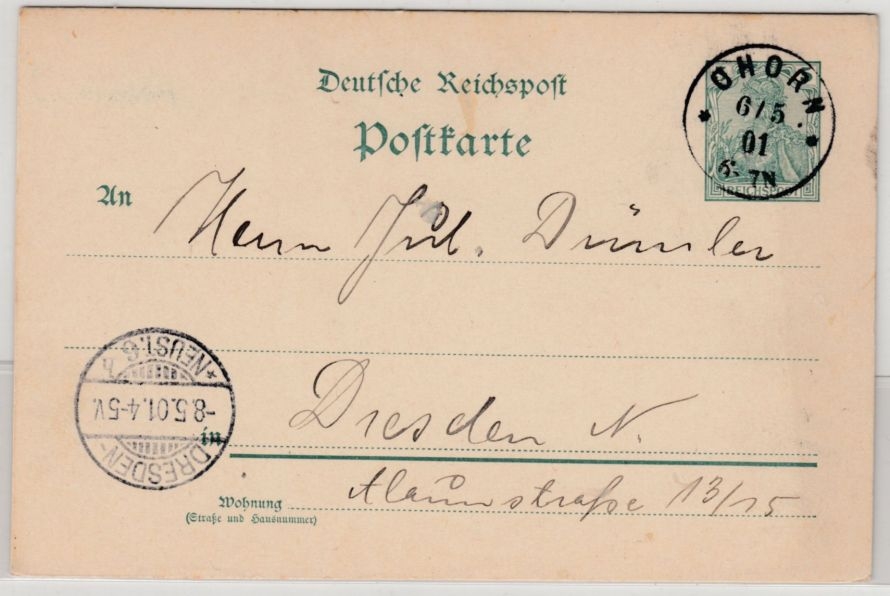 Deutsche Reichspost
Postkarte
OHORN
6/5
01
7N
REICHSPOST
An
Herrn Jul. Dümler
in
Dresden N.
Wohnung
(Straße und Hausnummer)
Alaunstraße 13/15
DRESDEN-
-8.5.01.4-5V.
*NEUST. 6 h.